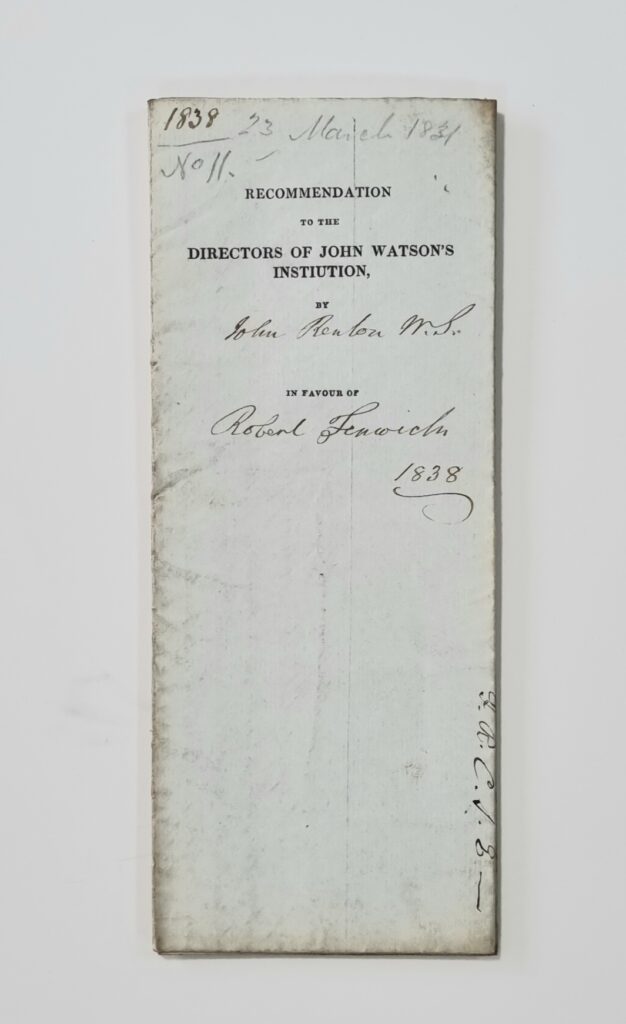 1838 23 March 1831
No 11.
RECOMMENDATION
TO THE
DIRECTORS OF JOHN WATSON'S
INSTIUTION,
BY
John Renton W.S.
IN FAVOUR OF
Robert Fenwick
1838
F.R.C.S.E